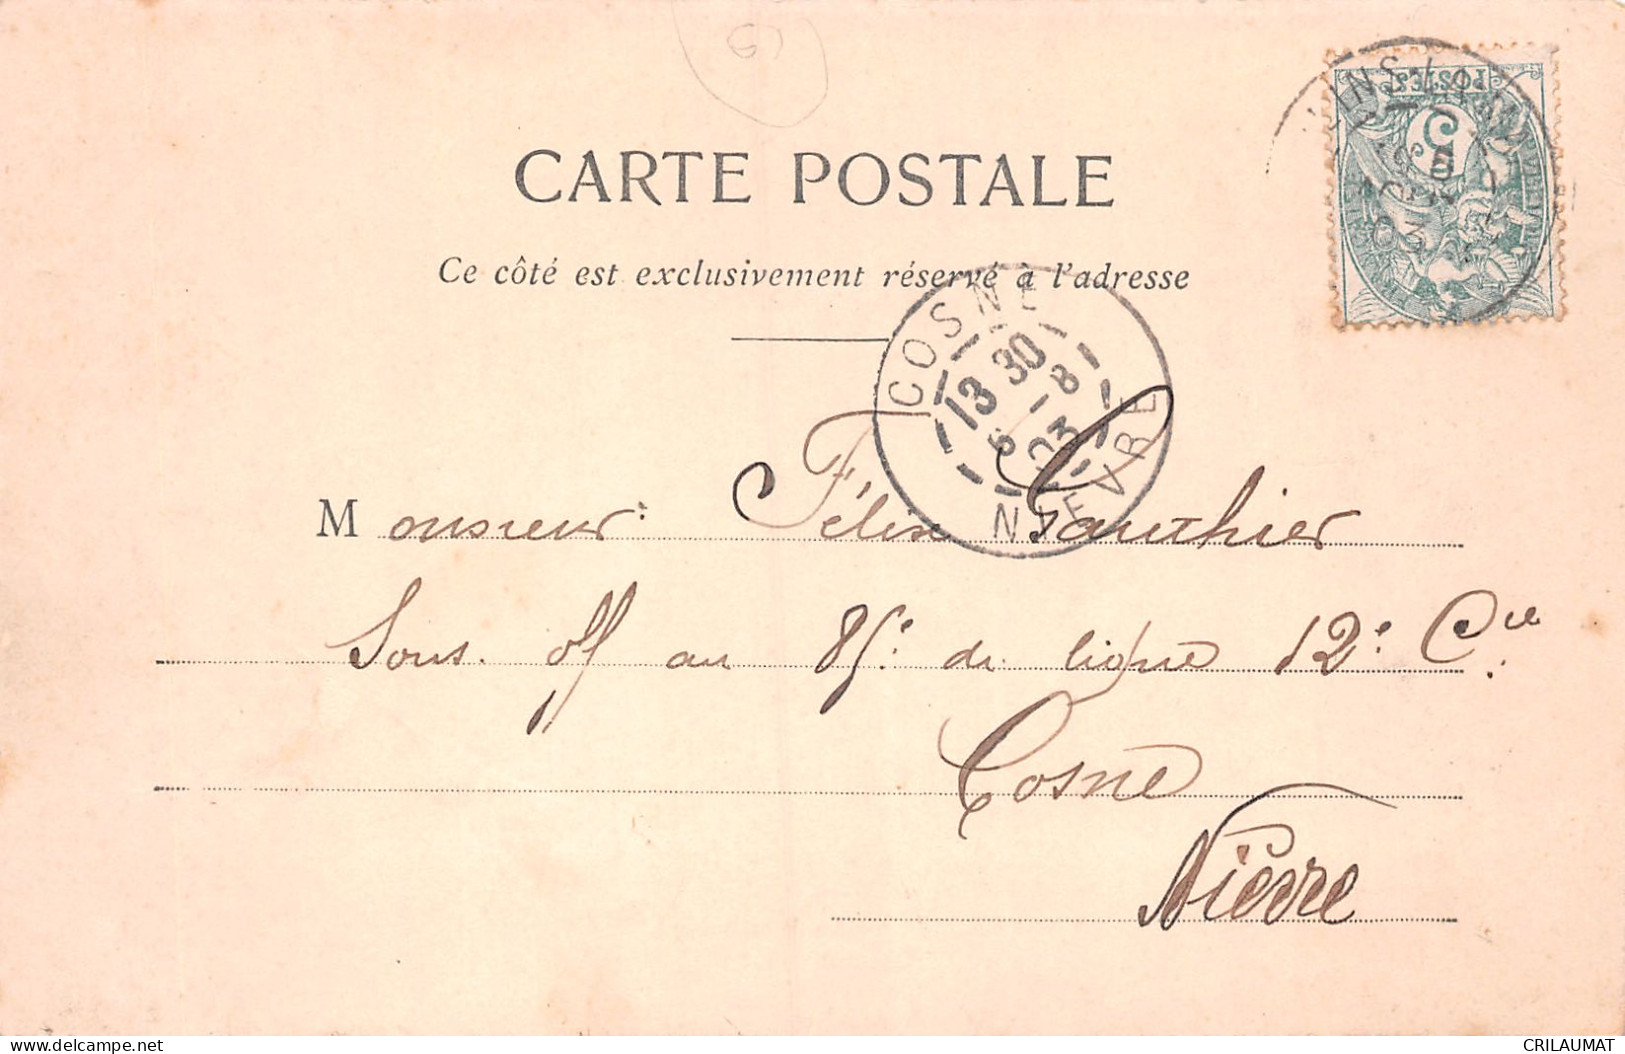 CARTE POSTALE
Ce côté est exclusivement réservé à l'adresse
POSTES
5
COSNE
13 30
5 - 8
03
NIEVRE
Monsieur Félix Gauthier
Sous. off au 85e de ligne 12e Cie
Cosne
Nièvre
CRILAUMAT